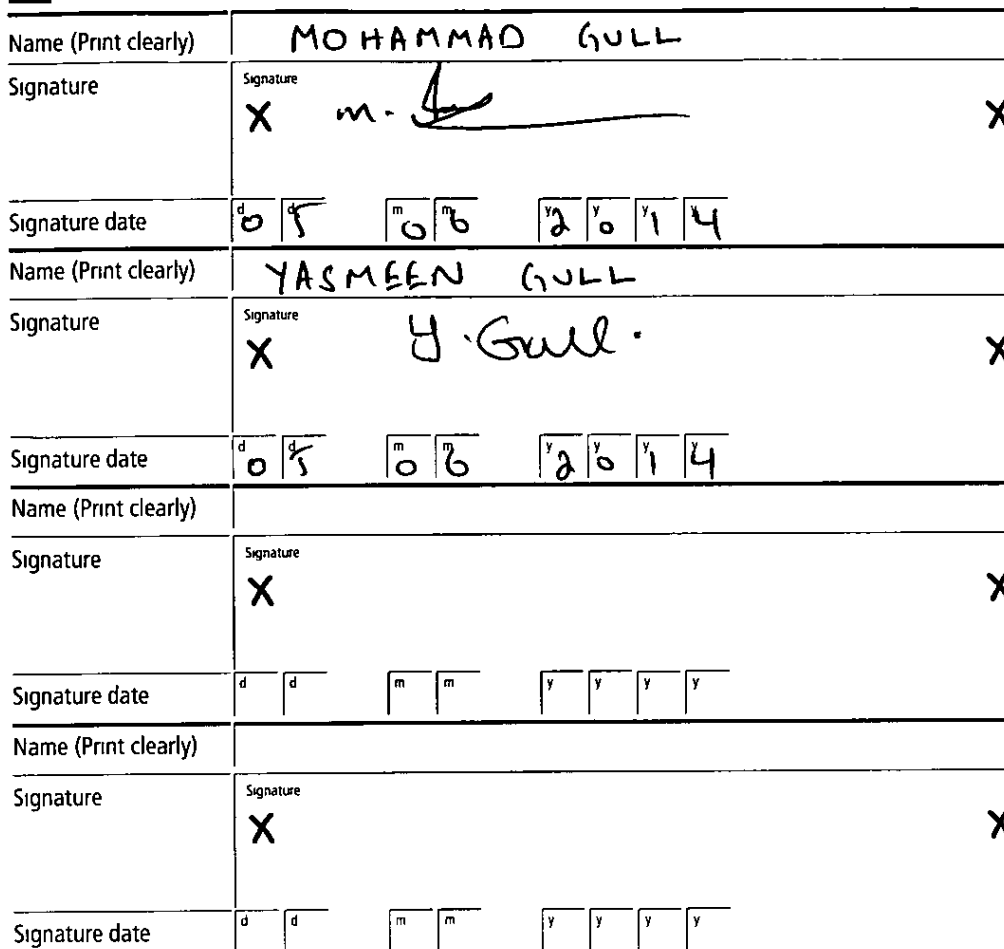 Name (Print clearly) MOHAMMAD GULL
Signature Signature
X m. X
Signature date d0 d5 m0 m6 y2 y0 y1 y4
Name (Print clearly) YASMEEN GULL
Signature Signature
X Y. Gull. X
Signature date d0 d5 m0 m6 y2 y0 y1 y4
Name (Print clearly)
Signature Signature
X X
Signature date d d m m y y y y
Name (Print clearly)
Signature Signature
X X
Signature date d d m m y y y y